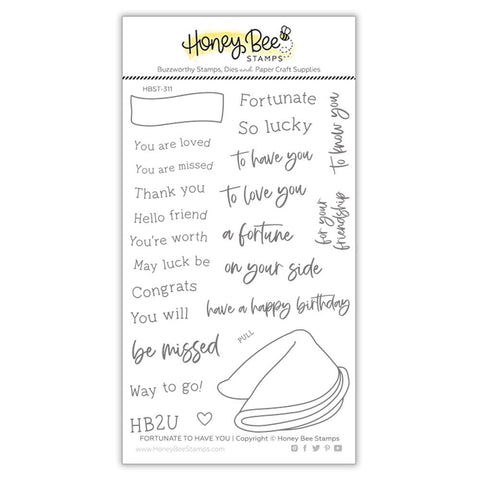 Honey Bee
STAMPS
Buzzworthy Stamps, Dies and Paper Craft Supplies
HBST-311
Fortunate
So lucky
to know you
You are loved
You are missed
to have you
Thank you
to love you
Hello friend
for your
friendship
You're worth
a fortune
May luck be
on your side
Congrats
You will
have a happy birthday
be missed
PULL
Way to go!
HB2U
FORTUNATE TO HAVE YOU | Copyright © Honey Bee Stamps
www.HoneyBeeStamps.com